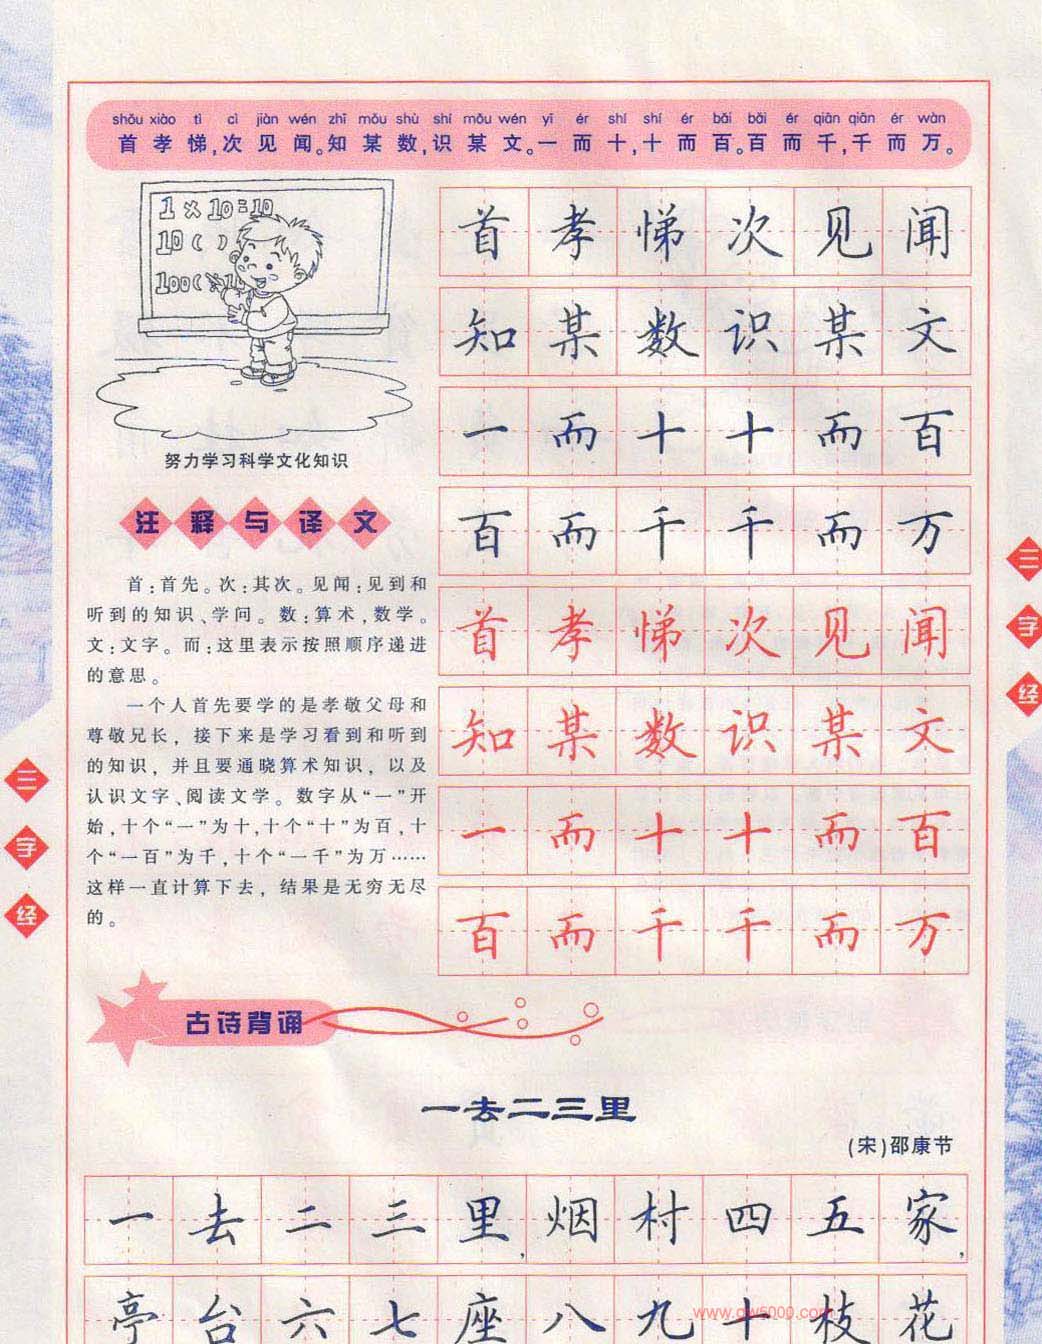 shǒu xiào tì cì jiàn wén zhī mǒu shù shí mǒu wén yī ér shí shí ér bǎi bǎi ér qiān qiān ér wàn
首孝悌,次见闻。知某数,识某文。一而十,十而百。百而千,千而万。
1×10=10
10( )
努力学习科学文化知识
注释与译文
首:首先。次:其次。见闻:见到和
听到的知识、学问。数:算术,数学。
文:文字。而:这里表示按照顺序递进
的意思。
一个人首先要学的是孝敬父母和
尊敬兄长,接下来是学习看到和听到
的知识,并且要通晓算术知识,以及
认识文字、阅读文学。数字从“一”开
始,十个“一”为十,十个“十”为百,十
个“一百”为千,十个“一千”为万……
这样一直计算下去,结果是无穷无尽
的。
首孝悌次见闻
知某数识某文
一而十十而百
百而千千而万
首孝悌次见闻
知某数识某文
一而十十而百
百而千千而万
三字经
三字经
古诗背诵
一去二三里
(宋)邵康节
一去二三里,烟村四五家,
亭台六七座八九十枝花
www.qw5000.com